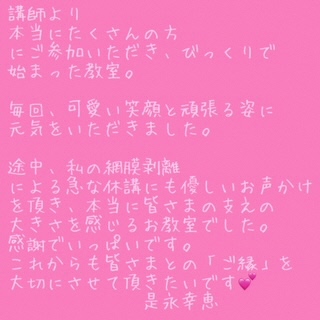 講師より
本当にたくさんの方
にご参加いただき、びっくりで
始まった教室。
毎回、可愛い笑顔と頑張る姿に
元気をいただきました。
途中、私の網膜剥離
による急な休講にも優しいお声かけ
を頂き、本当に皆さまの支えの
大きさを感じるお教室でした。
感謝でいっぱいです。
これからも皆さまとの「ご縁」を
大切にさせて頂きたいです💕
是永幸恵